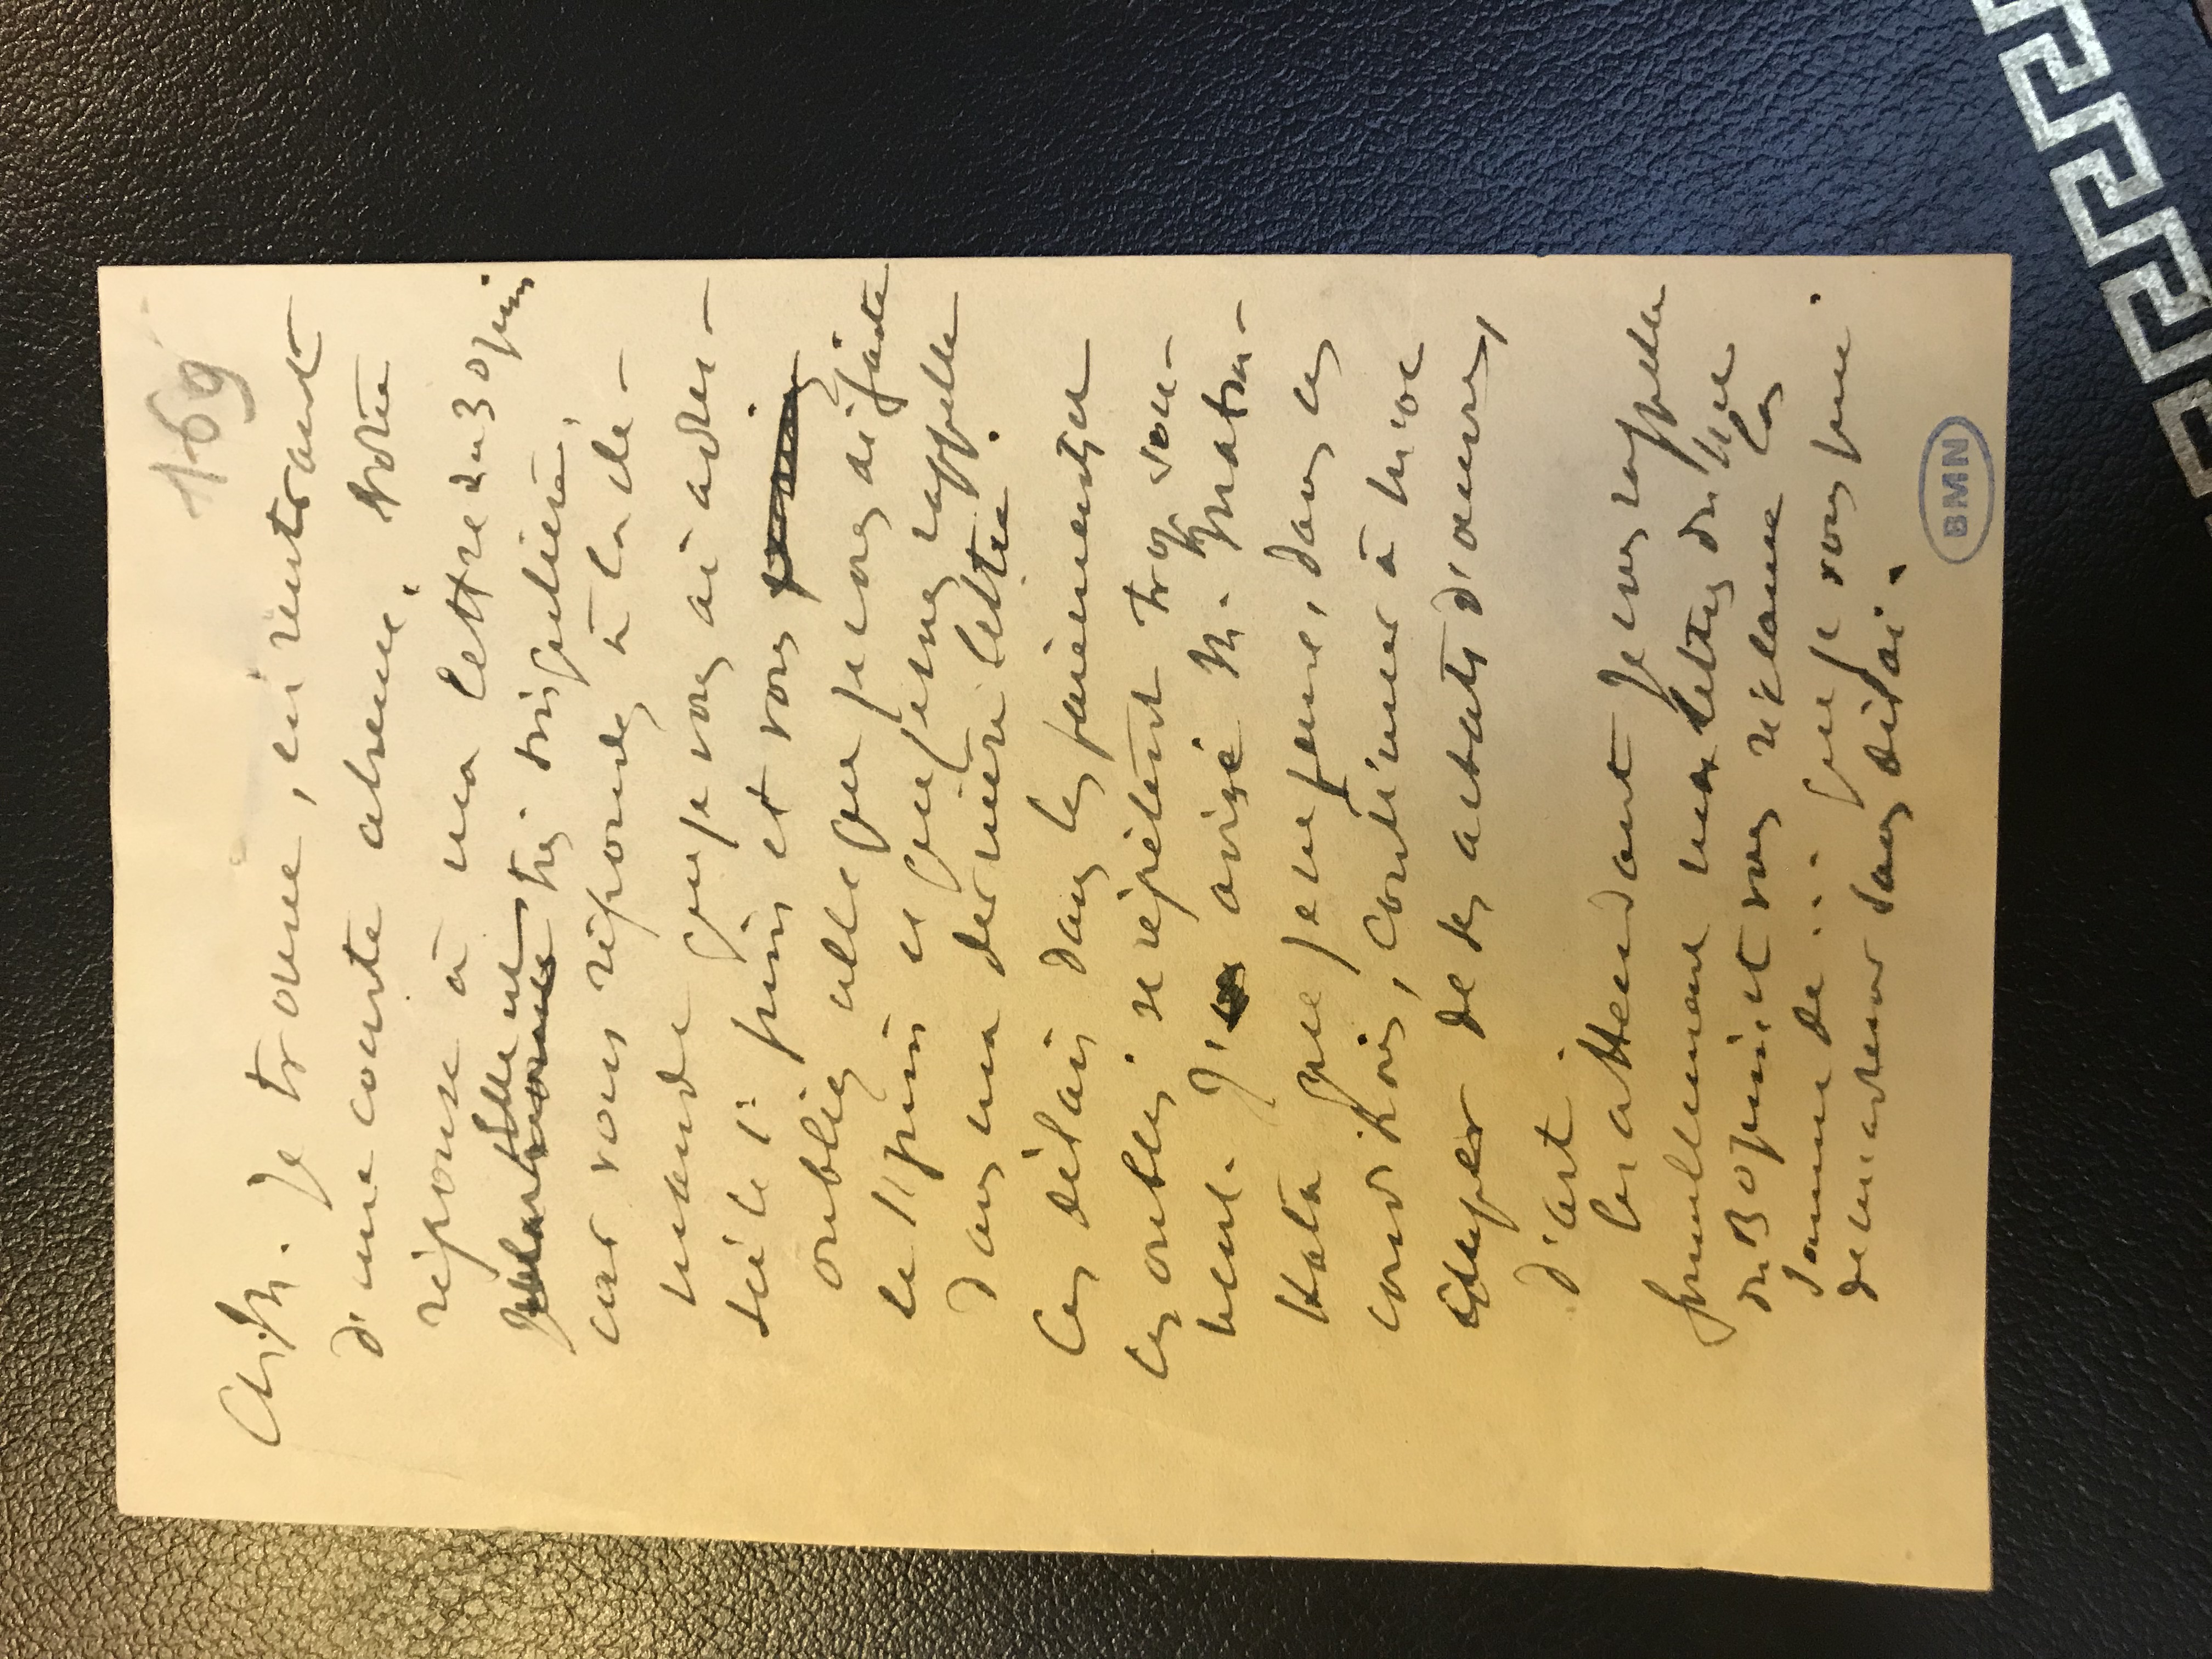 169
Ch. M. Je trouve, en rentrant
d'une courte absence, votre
réponse à ma lettre du 30 juin
réellement très singulière,
car vous répondez à la de-
mande que je vous ai adres-
sée le 1er juin et vous
oubliez celle que je vous ai faite
le 11 juin et que je vous rappelle
dans ma dernière lettre.
Ces délais dans les paiements et
ces oublis se répètent trop sou-
vent. J'ai avisé M.
que je ne peux, dans ces
conditions, continuer à
de ses achats d'oeuvres
d'art.
En attendant je vous rappelle
formellement ma lettre du 11 et
du 30 juin et vous réclame la
somme de ... que je vous prie
de m'adresser sans délai.
BMN